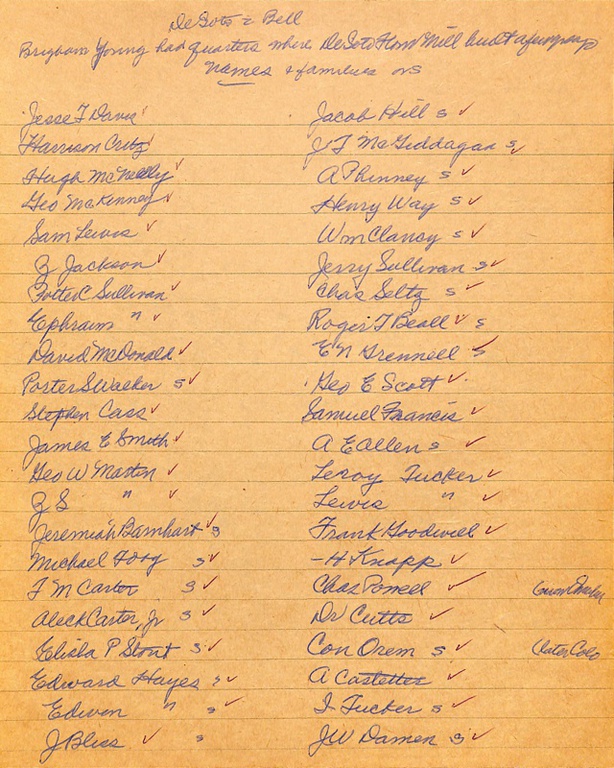 DeSoto & Bell
Brigham Young had quarters where DeSoto Flour Mill built
Names & families
Jesse T Davis ✓
Harrison Critz ✓
Hugh McNeely ✓
Geo McKinney ✓
Sam Lewis ✓
Z Jackson ✓
Potter C Sullivan ✓
Ephraim " ✓
David McDonald ✓
Porter S Walker s ✓
Stephen Cass ✓
James E Smith ✓
Geo W Masten ✓
Z S " ✓
Jeremiah Barnhart ✓ s
Michael s ✓
F M Carter s ✓
Aleck Carter, Jr s ✓
Elisha P Stout s ✓
Edward Hayes s ✓
Edwin " s ✓
J Bliss ✓ s
Jacob Hill s ✓
J T McGeddagan s ✓
A Phinney s ✓
Henry Way s ✓
Wm Clancy s ✓
Jerry Sullivan s ✓
Chas Seltz s ✓
Roger T Beall ✓ s
E N Grennell ✓ s
Geo E Scott ✓
Samuel Francis ✓
A E Allen s ✓
Leroy Tucker ✓
Lewis " ✓
Frank Goodwill ✓
- H Knapp ✓
Chas Powell ✓
Dr Cutts ✓
Con Orem s ✓ later Colo
A Castetter ✓
I Tucker s ✓
J W Damen s ✓